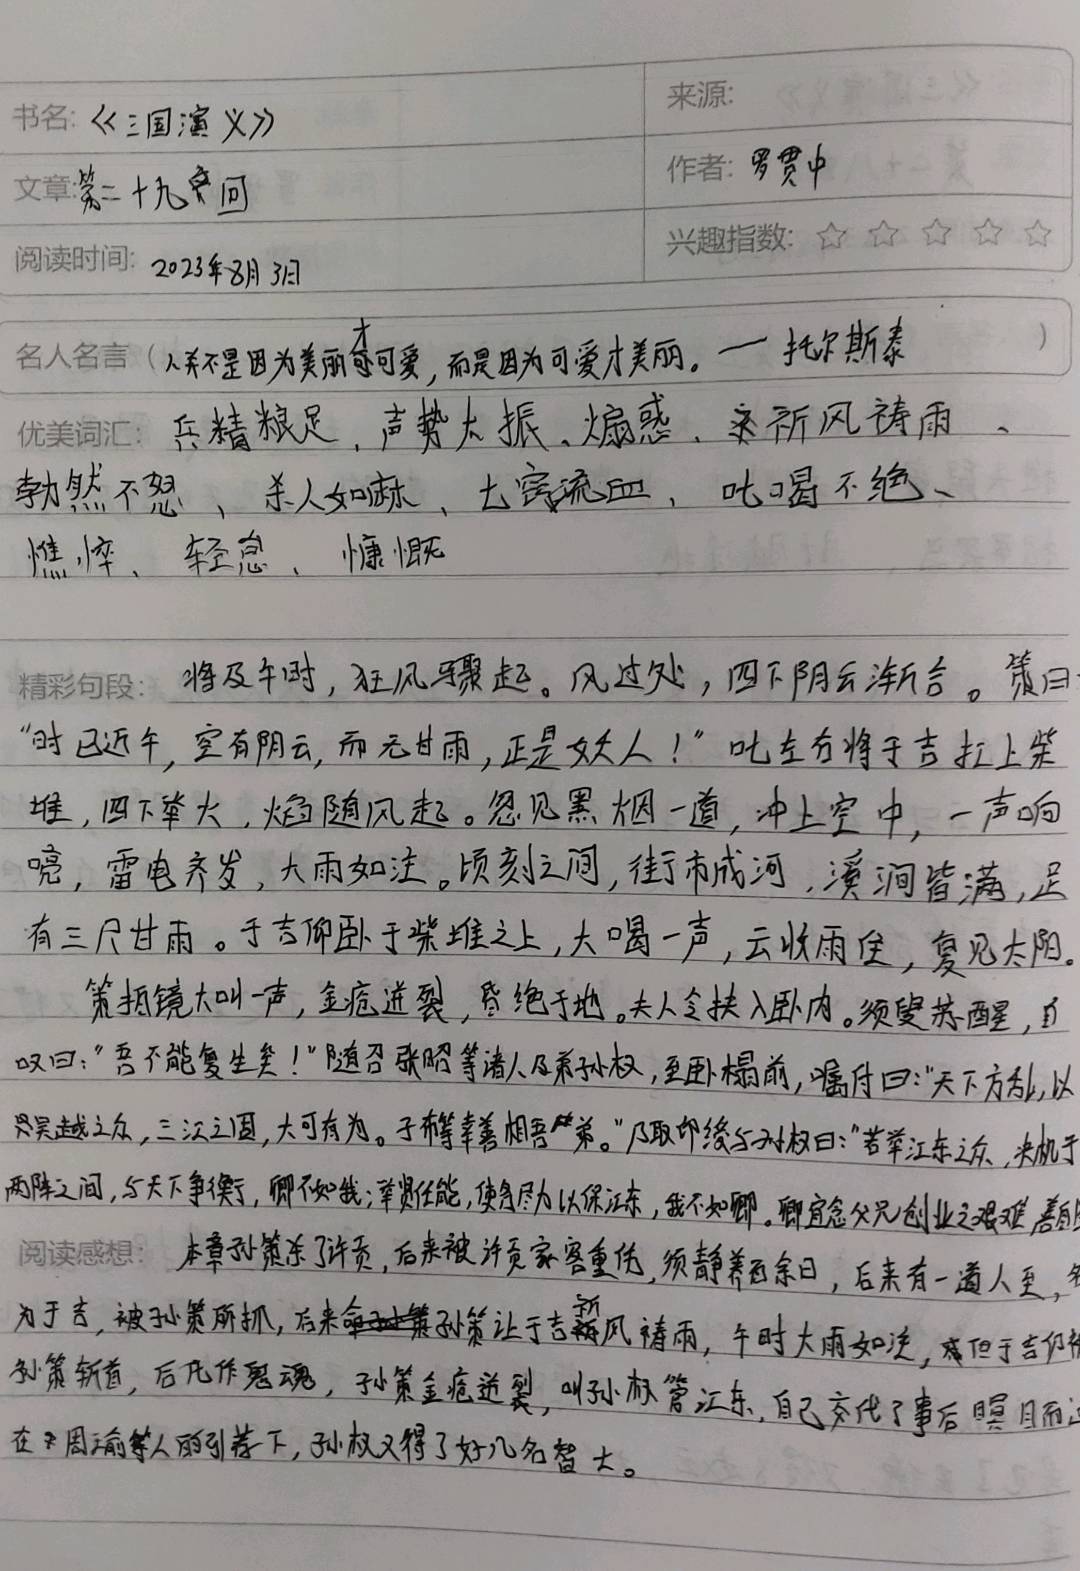 书名:《三国演义》
来源:
文章:第二十九回
作者:罗贯中
阅读时间:2023年8月3日
兴趣指数:☆☆☆☆☆
名人名言(人并不是因为美丽才可爱,而是因为可爱才美丽。——托尔斯泰)
优美词汇:兵精粮足、声势大振、煽惑、祈风祷雨、
勃然不怒、杀人如麻、七窍流血、叱喝不绝、
憔悴、轻怠、慷慨
精彩句段:将及午时,狂风骤起。风过处,四下阴云渐合。策曰:
“时已近午,空有阴云,而无甘雨,正是妖人!”叱左右将于吉扛上柴
堆,四下举火,焰随风起。忽见黑烟一道,冲上空中,一声响
喨,雷电齐发,大雨如注。顷刻之间,街市成河,溪涧皆满,足
有三尺甘雨。于吉仰卧于柴堆之上,大喝一声,云收雨住,复见太阳。
策拍镜大叫一声,金疮迸裂,昏绝于地。夫人令扶入卧内。须臾苏醒,自
叹曰:“吾不能复生矣!”随召张昭等诸人及弟孙权,至卧榻前,嘱付曰:“天下方乱,以
吴越之众,三江之固,大可有为。子布等幸善相吾弟。”乃取印绶与孙权曰:“若举江东之众,决机于
两阵之间,与天下争衡,卿不如我;举贤任能,使各尽力以保江东,我不如卿。卿宜念父兄创业之艰难,善自
阅读感想:本章孙策杀了许贡,后来被许贡家客重伤,须静养百余日,后来有一道人至,名
为于吉,被孙策所抓,后来孙策让于吉祈风祷雨,午时大雨如注,但于吉仍被
孙策斩首,后化作鬼魂,孙策金疮迸裂,叫孙权管江东,自己交代了事后瞑目而
在周瑜等人的引荐下,孙权又得了好几名智士。